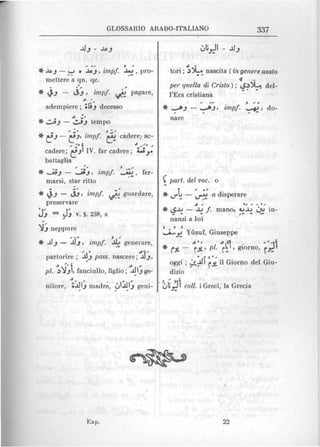 GLOSSARIO ARABO-ITALIANO 337
ولد - وعد
* وعد — وعد ب, impf. يعد, pro-
mettere a qn. qc.
impf. pagare,
adempiere; وفاة decesso
* وقت tempo
* وقع — وقع, impf. يقع cadere, ac-
cadere; أوقع IV. far cadere;
battaglia
* وقف — وقف, impf. يقف, fer-
marsi, star ritto
impf. guardare,
preservare
v. § 238, a
ولا neppure
* ولد — ولد, impf. يلد generare,
partorire; ولد pass. nascere; ولد,
pl. أولاد fanciullo, figlio; والد ge-
nitore, والدة madre, geni-
ولد - يونان
tori; ميلاد nascita (in genere usato
per quella di Cristo); del-
l'Era cristiana
* وهب — وهب, impf. يهب, do-
nare
يا part. del voc. o
a disperare
* يد — يد f. mano, بين يديه in-
nanzi a lui
يوسف Yūsuf, Giuseppe
* يوم — يوم, pl. أيام, giorno,
oggi; يوم الدين il Giorno del Giu-
dizio
يونان coll. i Greci, la Grecia
Esp. 22